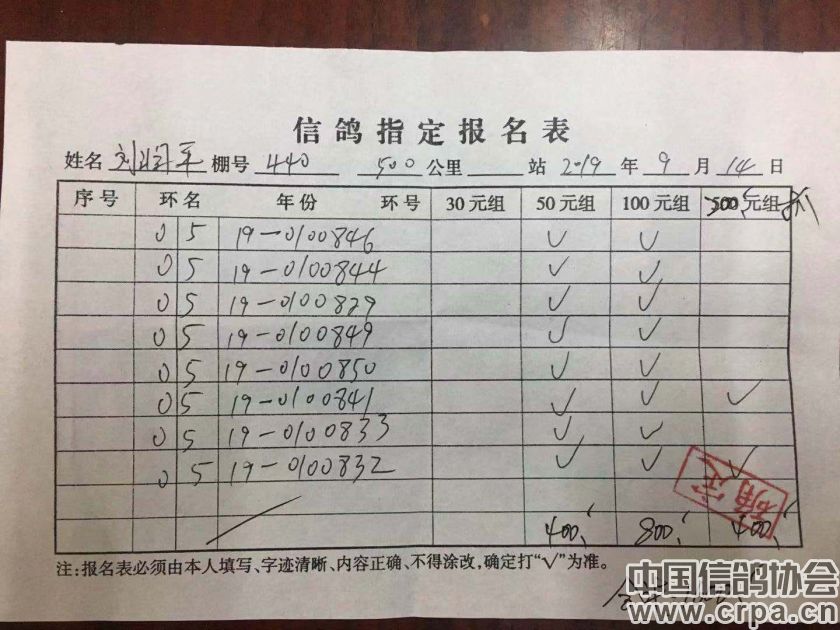 信鸽指定报名表
姓名 刘润平 棚号 440 500 公里 站 2019 年 9 月 14 日
序号 环名 年份 环号 30元组 50元组 100元组 500元组
05 19-0100846 √ √
05 19-0100844 √ √
05 19-0100829 √ √
05 19-0100849 √ √
05 19-0100850 √ √
05 19-0100841 √ √ √
05 19-0100833 √ √
05 19-0100832 √ √ √
确定
400 800 400
注:报名表必须由本人填写、字迹清晰、内容正确、不得涂改,确定打“√”为准。
中国信鸽协会
www.crpa.cn